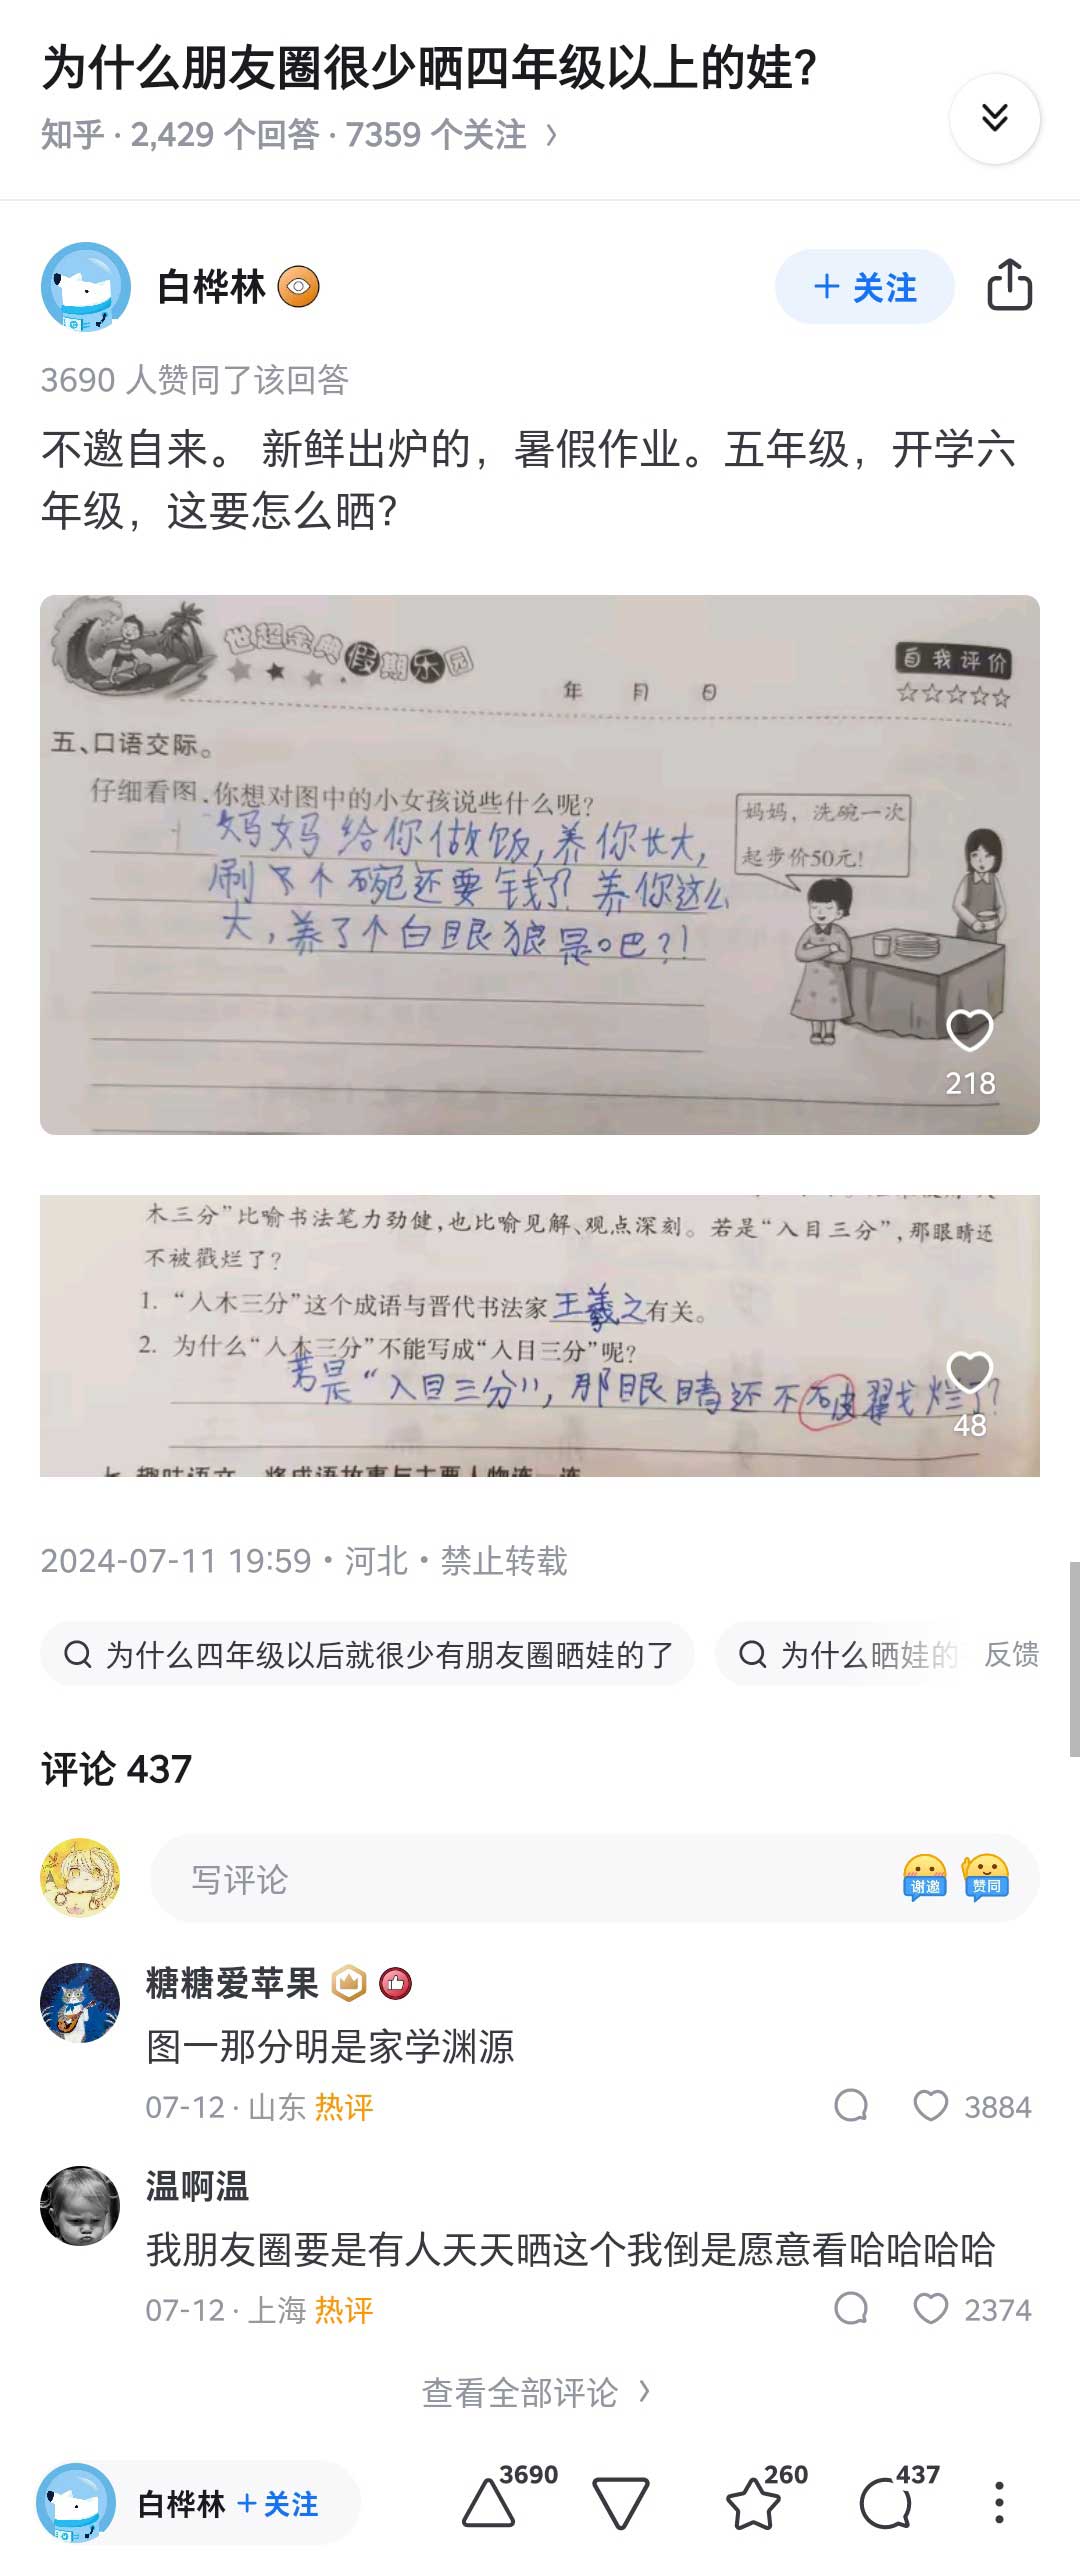 为什么朋友圈很少晒四年级以上的娃?
知乎 · 2,429 个回答 · 7359 个关注
白桦林
+ 关注
3690 人赞同了该回答
不邀自来。 新鲜出炉的，暑假作业。五年级，开学六
年级，这要怎么晒？
世超金典假期乐园
自我评价
年 月 日
☆☆☆☆☆
五、口语交际。
仔细看图,你想对图中的小女孩说些什么呢?
妈妈给你做饭,养你长大,
刷个碗还要钱了? 养你这么
大,养了个白眼狼是吧?!
妈妈，洗碗一次
起步价50元!
218
木三分”比喻书法笔力劲健,也比喻见解、观点深刻。若是“入目三分”,那眼睛还
不被戳烂了?
1. “入木三分”这个成语与晋代书法家王羲之有关。
2. 为什么“入木三分”不能写成“入目三分”呢?
若是“入目三分”,那眼睛还不被戳烂了?
48
七、趣味语文。将成语故事与主要人物连一连
2024-07-11 19:59 · 河北 · 禁止转载
为什么四年级以后就很少有朋友圈晒娃的了
为什么晒娃的
反馈
评论 437
写评论
谢邀
赞同
糖糖爱苹果
图一那分明是家学渊源
07-12 · 山东 热评
3884
温啊温
我朋友圈要是有人天天晒这个我倒是愿意看哈哈哈哈
07-12 · 上海 热评
2374
查看全部评论
白桦林 + 关注
3690
260
437